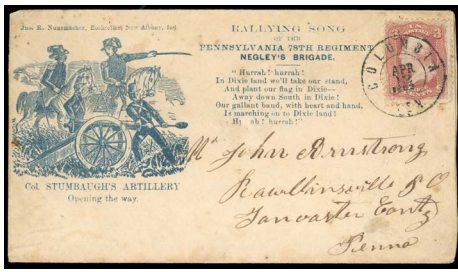 Jno. R. Nunemacher, Bookseller, New Albany, Ind.
RALLYING SONG
OF THE
PENNSYLVANIA 78TH REGIMENT
NEGLEY'S BRIGADE.
"Hurrah! hurrah!
In Dixie land we'll take our stand,
And plant our flag in Dixie—
Away down South in Dixie!
Our gallant band, with heart and hand,
Is marching on to Dixie land!
hurrah!"
COLUMBIA
APR
3
Col. STUMBAUGH'S ARTILLERY
Opening the way.
Mr John Armstrong
Rawlinsville P O
Lancaster Conty
Penna